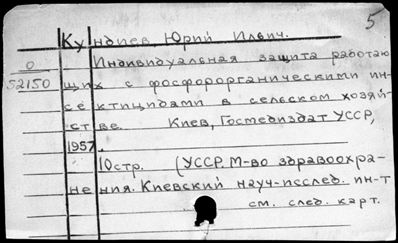 5
Кундиев, Юрий Ильич.
О
52150
Индивидуальная защита работаю
щих с фосфорорганическими ин-
сектицидами в сельском хозяй-
стве. Киев, Госмедиздат УССР,
1957.
10стр. (УССР. М-во здравоохра-
нения. Киевский науч-исслед. ин-т
см. след. карт.